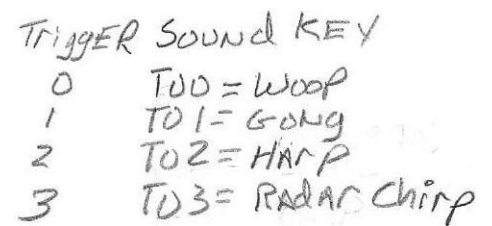 TriggER SOUNd KEY
0 T00 = WOOP
1 T01 = GONg
2 T02 = HArP
3 T03 = RAdAr Chirp